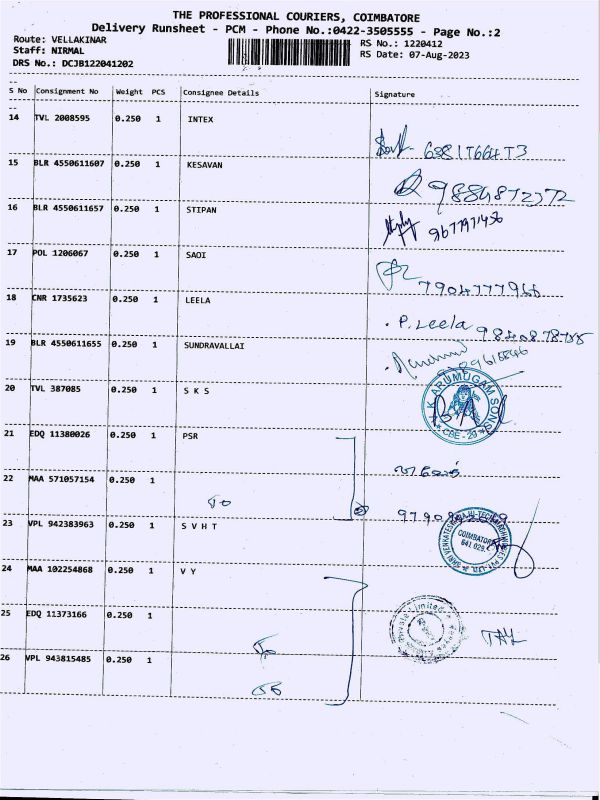 THE PROFESSIONAL COURIERS, COIMBATORE
Delivery Runsheet - PCM - Phone No.:0422-3505555 - Page No.:2
Route: VELLAKINAR
Staff: NIRMAL
DRS No.: DCJB122041202
RS No.: 1220412
RS Date: 07-Aug-2023
S No Consignment No Weight PCS Consignee Details Signature
14 TVL 2008595 0.250 1 INTEX
15 BLR 4550611607 0.250 1 KESAVAN
16 BLR 4550611657 0.250 1 STIPAN
9677971456
17 POL 1206067 0.250 1 SAOI
7904777966
18 CNR 1735623 0.250 1 LEELA
P. Leela
19 BLR 4550611655 0.250 1 SUNDRAVALLAI
20 TVL 387085 0.250 1 S K S
K ARUMUGAM SONS
CBE - 29
21 EDQ 11380026 0.250 1 PSR
22 MAA 571057154 0.250 1
23 VPL 942383963 0.250 1 S V H T
COIMBATORE
641 029.
24 MAA 102254868 0.250 1 V Y
25 EDQ 11373166 0.250 1
Private Limited
26 VPL 943815485 0.250 1